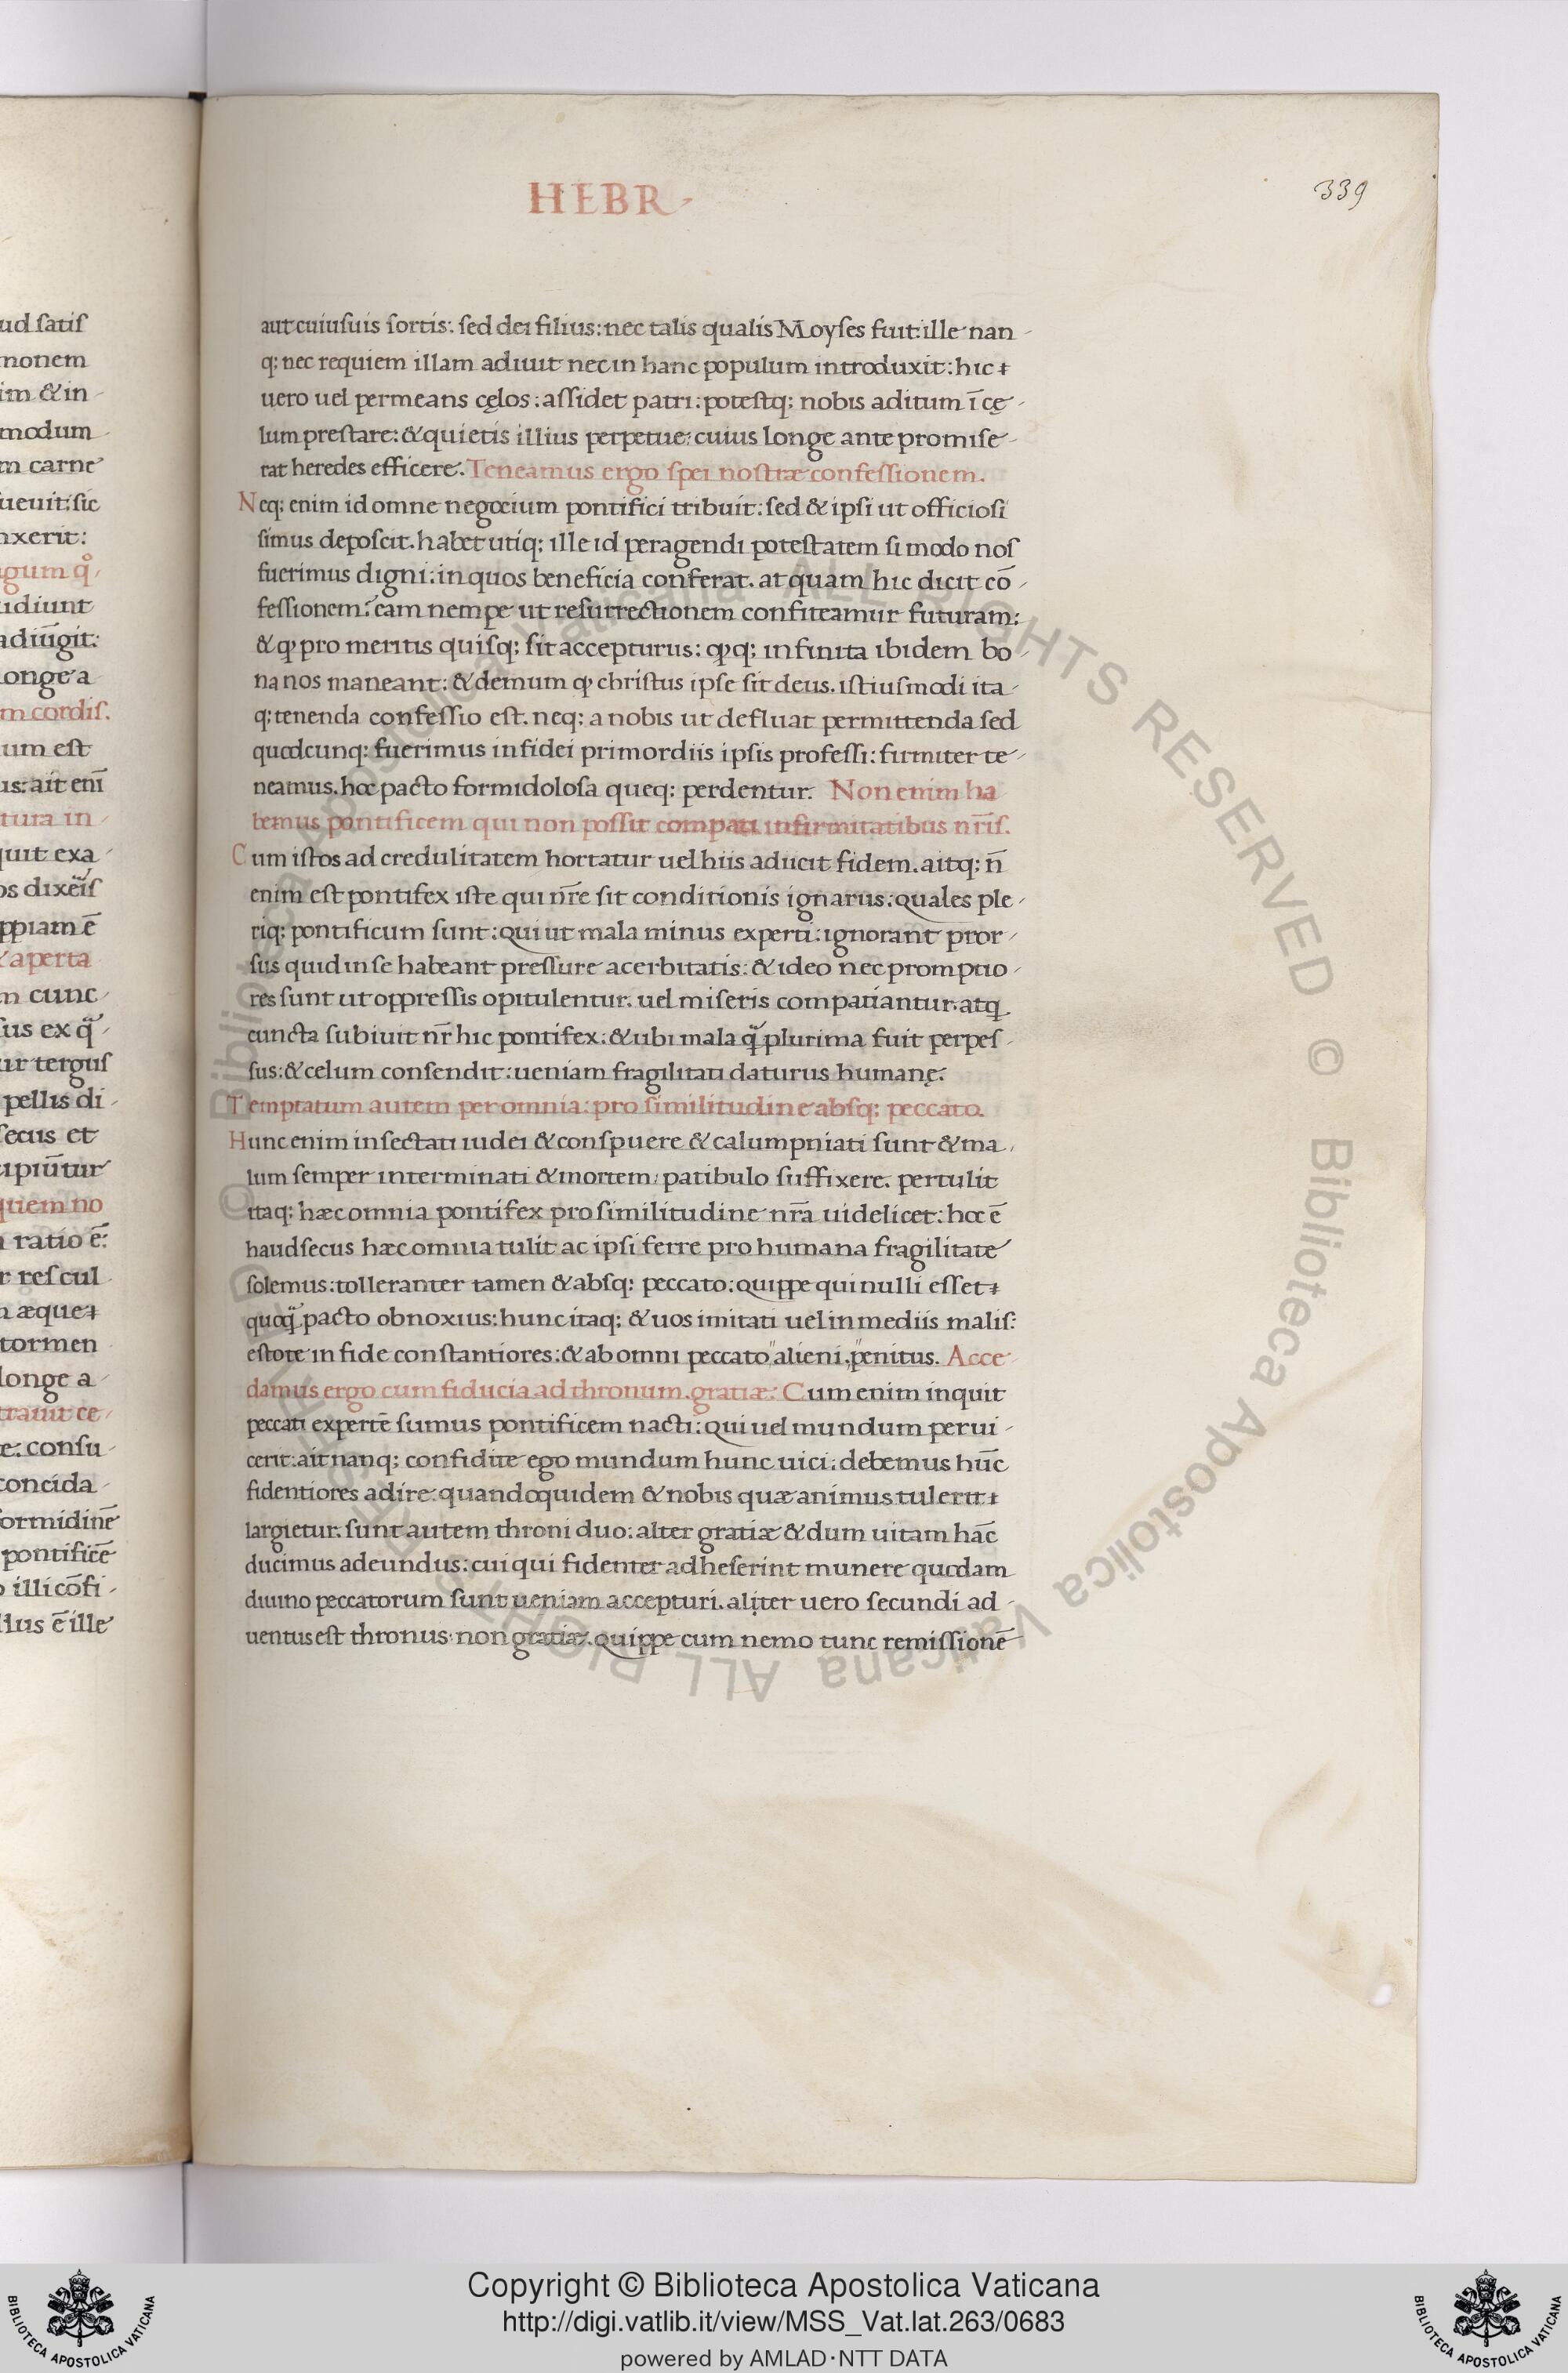 HEBR
339
aut cuiusuis sortis: sed dei filius: nec talis qualis Moyses fuit: ille nan-
q; nec requiem illam adiuit nec in hanc populum introduxit: hic
uero uel permeans cęlos: assidet patri: potestq; nobis aditum ī cę-
lum prestare: & quietis illius perpetue: cuius longe ante promise-
rat heredes efficere. Teneamus ergo spei nostræ confessionem.
Neq; enim id omne negocium pontifici tribuit: sed & ipsi ut officiosi
simus deposcit. habet utiq; ille id peragendi potestatem si modo nos
fuerimus digni: in quos beneficia conferat. at quam hic dicit cō-
fessionem: eam nempe ut resurrectionem confiteamur futuram:
& ꝙ pro meritis quisq; sit accepturus: ꝙq; infinita ibidem bo-
na nos maneant: & demum ꝙ christus ipse sit deus. istiusmodi ita-
q; tenenda confessio est. neq; a nobis ut defluat permittenda sed
quodcunq; fuerimus in fidei primordiis ipsis professi: firmiter te-
neamus. hoc pacto formidolosa queq; perdentur. Non enim ha
bemus pontificem qui non possit compati infirmitatibus nr̄is.
Cum istos ad credulitatem hortatur uel hiis adiicit fidem. aitq; n̄
enim est pontifex iste qui nr̄e sit conditionis ignarus: quales ple-
riq; pontificum sunt: qui ut mala minus experti: ignorant pror-
sus quid in se habeant pressure acerbitatis: & ideo nec promptio-
res sunt ut oppressis opitulentur. uel miseris compatiantur. atq
cuncta subiuit nr̄ hic pontifex: & ubi mala q̃ plurima fuit perpes-
sus: & celum consendit: ueniam fragilitati daturus humanę.
Temptatum autem per omnia: pro similitudine absq; peccato.
Hunc enim insectati iudei & conspuere & calumpniati sunt & ma-
lum semper interminati & mortem: patibulo suffixere. pertulit
itaq; hæc omnia pontifex pro similitudine nr̄a uidelicet: hoc ē
haud secus hæc omnia tulit ac ipsi ferre pro humana fragilitate
solemus: tolleranter tamen & absq; peccato: quippe qui nulli esset
quoq̃ pacto obnoxius: hunc itaq; & uos imitati uel in mediis malis:
estote in fide constantiores: & ab omni peccato "alieni, "penitus. Acce-
damus ergo cum fiducia ad thronum. gratiæ: Cum enim inquit
peccati expertē sumus pontificem nacti: qui uel mundum perui-
cerit: ait nanq; confidite ego mundum hunc uici: debemus hūc
fidentiores adire: quandoquidem & nobis quæ animus tulerit
largietur. sunt autem throni duo: alter gratiæ & dum uitam hāc
ducimus adeundus: cui qui fidenter adheserint munere quodam
diuino peccatorum sunt ueniam accepturi. aliter uero secundi ad-
uentus est thronus non gratiæ. quippe cum nemo tunc remissionē
ud satis
monem
im & in-
modum
m carne
ueuit: sic
nxerit:
idiunt
adiūgit:
longe a
m cordis.
um est
us: ait enī
tura in
quit exa-
os dixeīs
ppiam ē
aperta
m cunc-
sus ex q̃
ur tergus
pellis di-
secus et
cipiūtur
quem no
ratio ē:
r res cul
æque
tormen
longe a-
trauit ce-
e: consu-
concida-
formidinē
pontificē
illi cōfi-
llus ē ille
© Biblioteca Apostolica Vaticana ALL RIGHTS RESERVED © Biblioteca Apostolica Vaticana ALL RIGHTS RESERVED
BIBLIOTECA APOSTOLICA VATICANA
Copyright © Biblioteca Apostolica Vaticana
http://digi.vatlib.it/view/MSS_Vat.lat.263/0683
powered by AMLAD·NTT DATA
BIBLIOTECA APOSTOLICA VATICANA